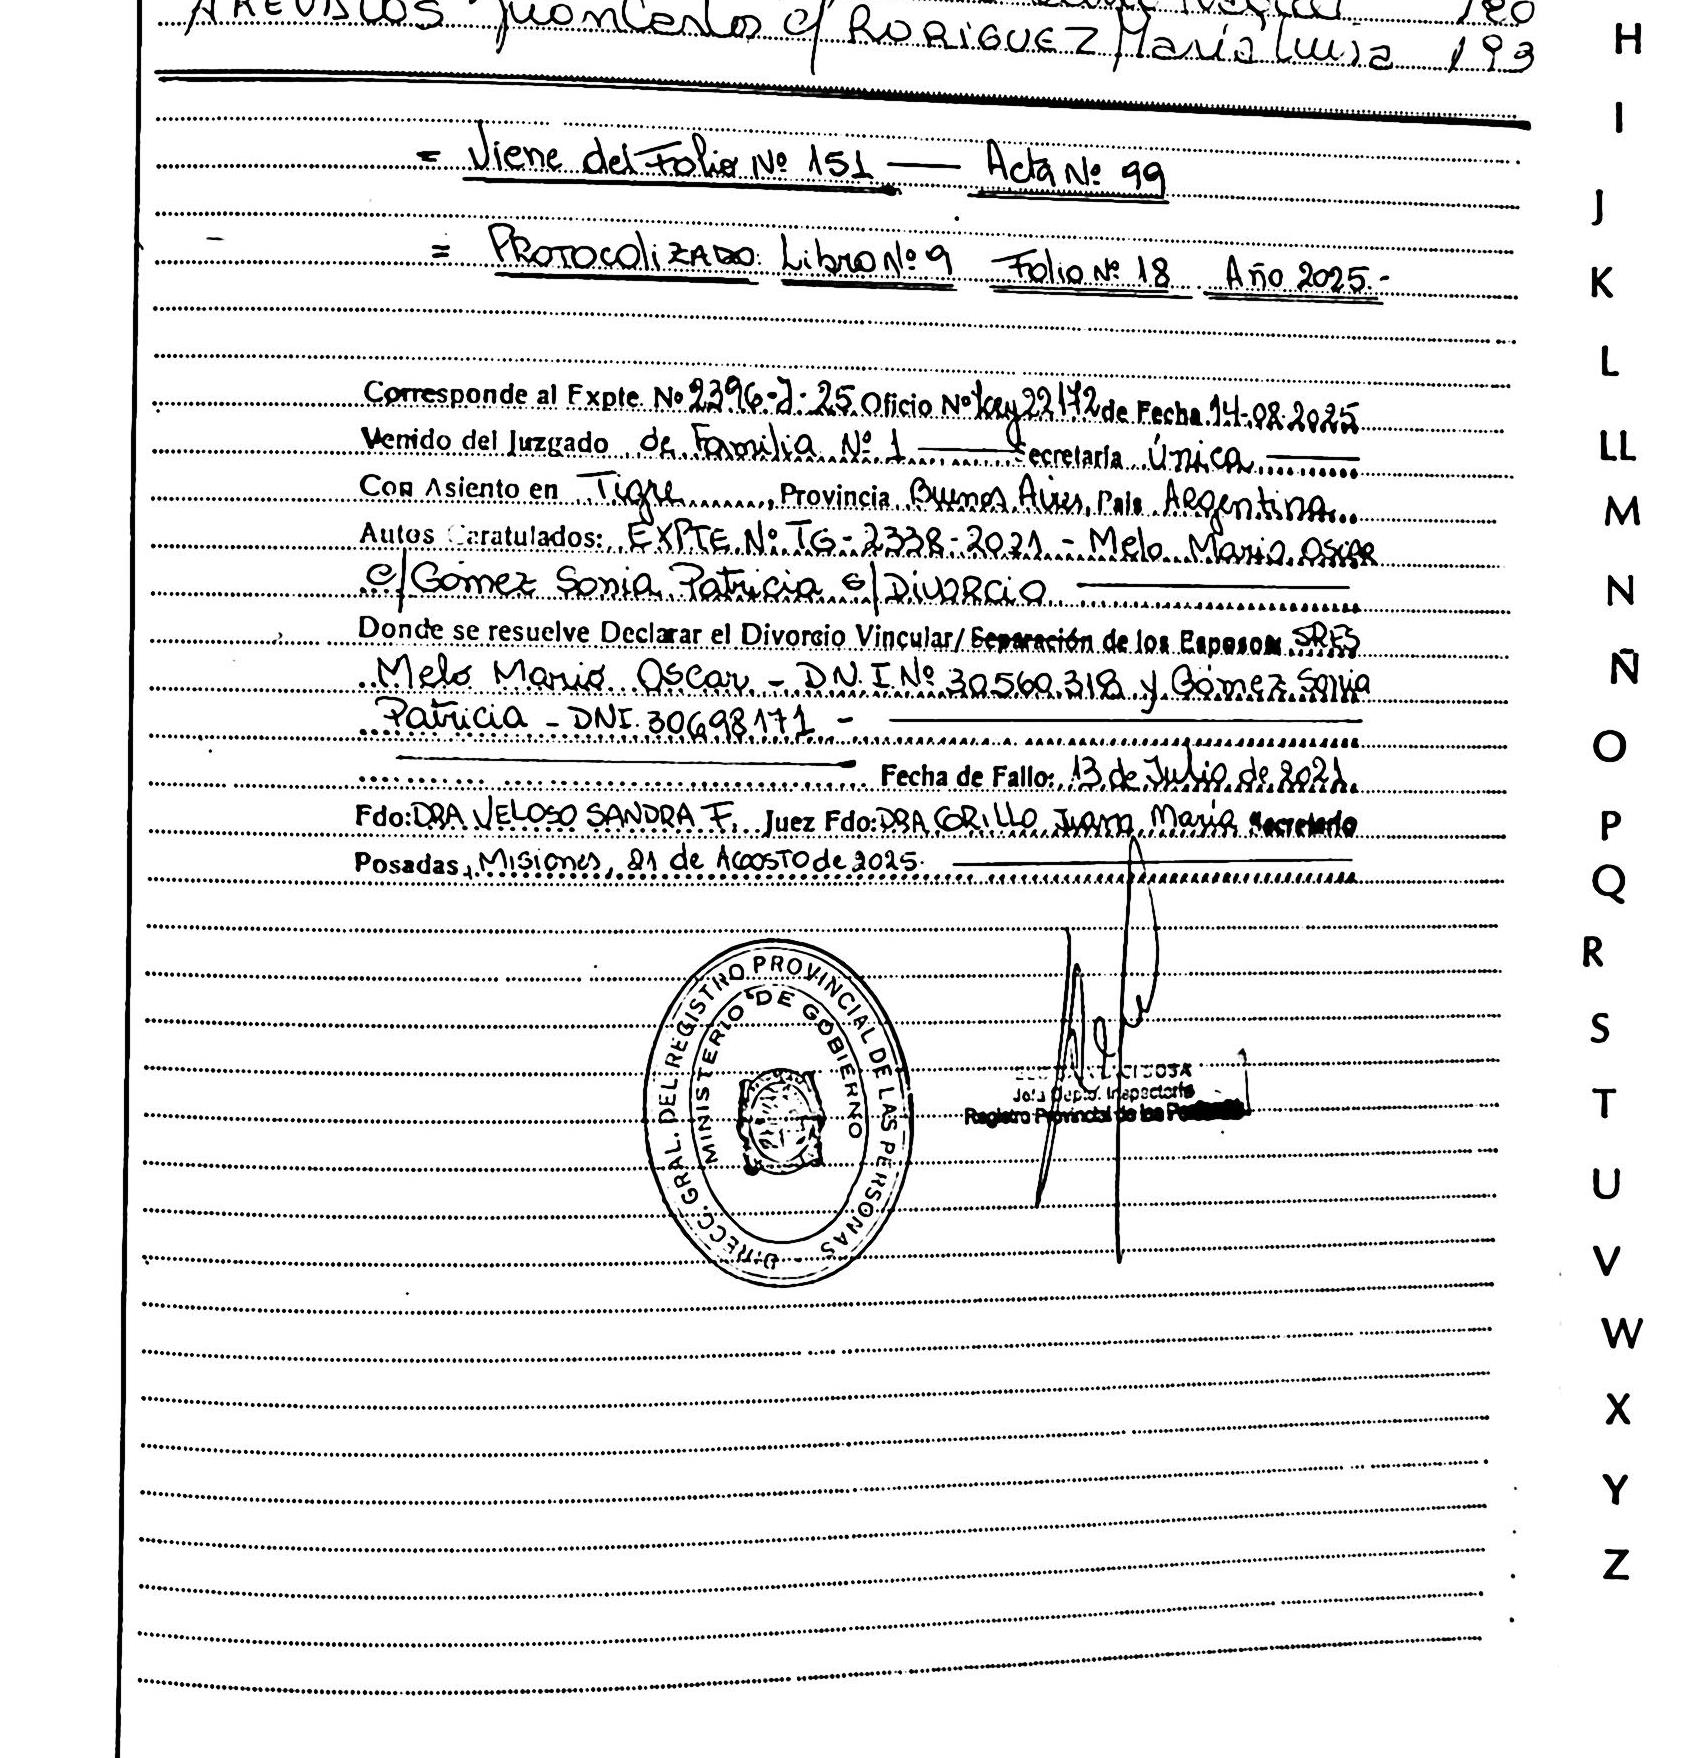 AREVALOS Juan Carlos c/ RODRIGUEZ María Luisa 193
= Viene del Folio Nº 151 — Acta Nº 99
= PROTOCOLIZADO: Libro Nº 9 Folio Nº 18 Año 2025.-
Corresponde al Expte. Nº 2396-J-25 Oficio Nº Ley 22172 de Fecha 14-08-2025
Venido del Juzgado de Familia Nº 1 — Secretaría Única
Con Asiento en Tigre, Provincia Buenos Aires, País Argentina
Autos Caratulados: EXPTE Nº TG-2338-2021 - Melo Mario Oscar
c/ Gómez Sonia Patricia s/ Divorcio
Donde se resuelve Declarar el Divorcio Vincular/ Separación de los Esposos SRES
Melo Mario Oscar - D.N.I. Nº 30560.318 y Gómez Sonia
Patricia - DNI. 30698171 -
Fecha de Fallo: 13 de Julio de 2021
Fdo: DRA VELOSO SANDRA F. Juez Fdo: DRA GRILLO Juana María Secretario
Posadas, Misiones, 21 de AGOSTO de 2025.
DIRECC. GRAL. DEL REGISTRO PROVINCIAL DE LAS PERSONAS
MINISTERIO DE GOBIERNO
Jefa Depto. Inspectoría
Registro Provincial de las
H
I
J
K
L
LL
M
N
Ñ
O
P
Q
R
S
T
U
V
W
X
Y
Z